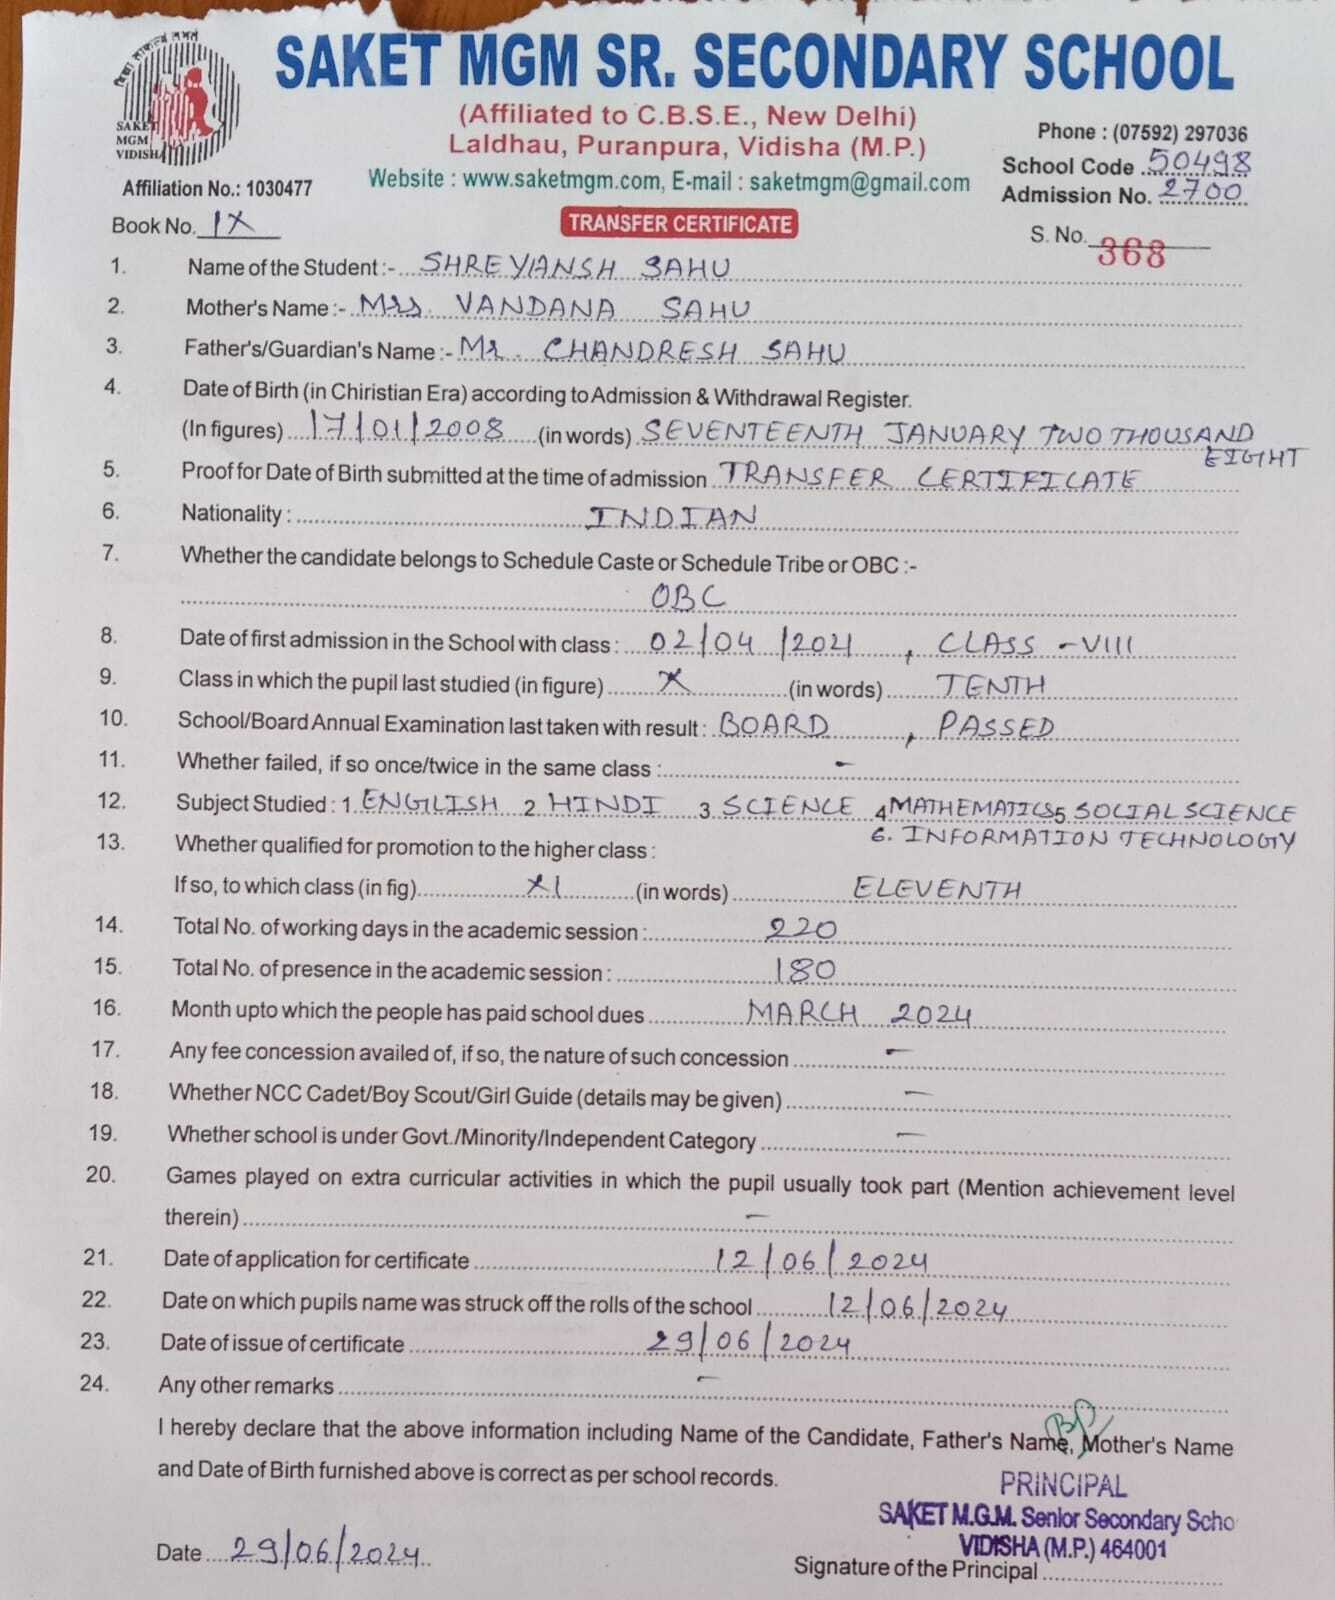 SAKET MGM SR. SECONDARY SCHOOL
(Affiliated to C.B.S.E., New Delhi)
Laldhau, Puranpura, Vidisha (M.P.)
Website : www.saketmgm.com, E-mail : saketmgm@gmail.com
SAKET
MGM
VIDISHA
Phone : (07592) 297036
School Code 50498
Admission No. 2700
Affiliation No.: 1030477
Book No. IX
TRANSFER CERTIFICATE
S. No. 368
1. Name of the Student :- SHREYANSH SAHU
2. Mother's Name :- Mrs. VANDANA SAHU
3. Father's/Guardian's Name :- Mr. CHANDRESH SAHU
4. Date of Birth (in Chiristian Era) according to Admission & Withdrawal Register.
(In figures) 17/01/2008 (in words) SEVENTEENTH JANUARY TWO THOUSAND
EIGHT
5. Proof for Date of Birth submitted at the time of admission TRANSFER CERTIFICATE
6. Nationality : INDIAN
7. Whether the candidate belongs to Schedule Caste or Schedule Tribe or OBC :-
OBC
8. Date of first admission in the School with class : 02/04/2021, CLASS - VIII
9. Class in which the pupil last studied (in figure) X (in words) TENTH
10. School/Board Annual Examination last taken with result : BOARD, PASSED
11. Whether failed, if so once/twice in the same class : -
12. Subject Studied : 1. ENGLISH 2 HINDI 3 SCIENCE 4 MATHEMATICS 5 SOCIAL SCIENCE
6. INFORMATION TECHNOLOGY
13. Whether qualified for promotion to the higher class :
If so, to which class (in fig) XI (in words) ELEVENTH
14. Total No. of working days in the academic session : 220
15. Total No. of presence in the academic session : 180
16. Month upto which the people has paid school dues MARCH 2024
17. Any fee concession availed of, if so, the nature of such concession -
18. Whether NCC Cadet/Boy Scout/Girl Guide (details may be given) -
19. Whether school is under Govt./Minority/Independent Category -
20. Games played on extra curricular activities in which the pupil usually took part (Mention achievement level
therein) -
21. Date of application for certificate 12/06/2024
22. Date on which pupils name was struck off the rolls of the school 12/06/2024
23. Date of issue of certificate 29/06/2024
24. Any other remarks -
I hereby declare that the above information including Name of the Candidate, Father's Name, Mother's Name
and Date of Birth furnished above is correct as per school records.
PRINCIPAL
SAKET M.G.M. Senior Secondary Scho
VIDISHA (M.P.) 464001
Date 29/06/2024
Signature of the Principal